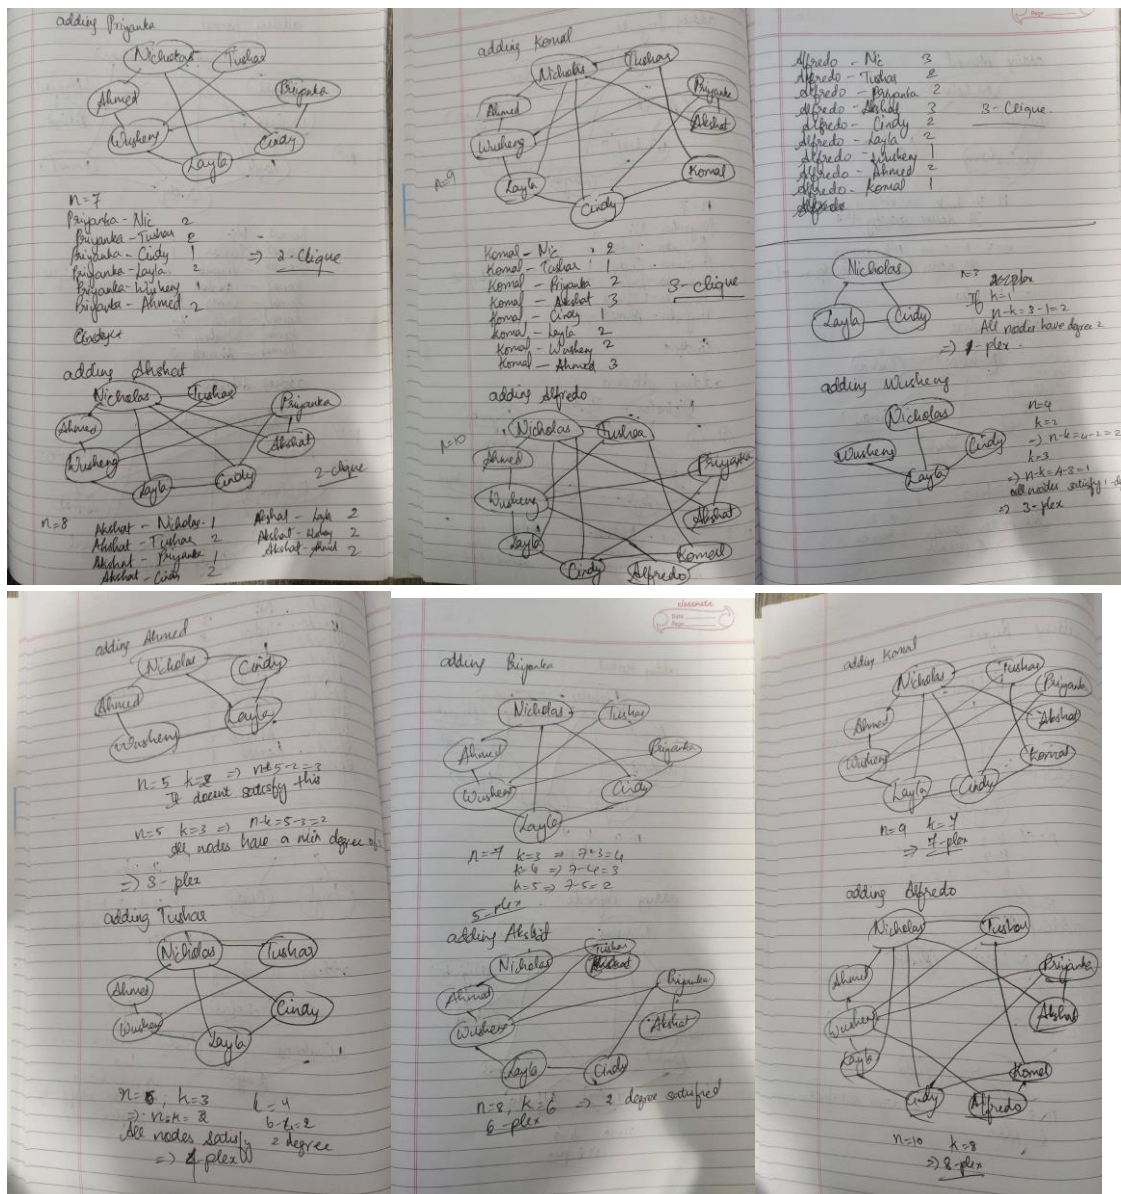 adding Priyanka
Nicholas
Tushar
Ahmed
Priyanka
Wusheng
Cindy
Layla
n=7
Priyanka - Nic 2
Priyanka - Tushar 2
Priyanka - Cindy 1
Priyanka - Layla 2
Priyanka - Wusheng 1
Priyanka - Ahmed 2
=> 2-Clique
adding Akshat
Nicholas
Tushar
Priyanka
Ahmed
Akshat
Wusheng
Cindy
Layla
2-clique
n=8
Akshat - Nicholas - 1
Akshat - Tushar 2
Akshat - Priyanka 1
Akshat - Cindy 2
Akshat - Layla 2
Akshat - Ahmed 2
adding Komal
Nicholas
Tushar
Priyanka
Ahmed
Akshat
Wusheng
Komal
Layla
Cindy
n=9
Komal - Nic 2
Komal - Tushar 1
Komal - Priyanka 2
Komal - Akshat 3
Komal - Cindy 1
Komal - Layla 2
Komal - Wusheng 2
Komal - Ahmed 3
3-clique
adding Alfredo
n=10
Nicholas
Tushar
Ahmed
Priyanka
Wusheng
Akshat
Layla
Komal
Cindy
Alfredo
Alfredo - Nic 3
Alfredo - Tushar 2
Alfredo - Priyanka 2
Alfredo - Akshat 3
Alfredo - Cindy 2
Alfredo - Layla 2
Alfredo - Wusheng 1
Alfredo - Ahmed 2
Alfredo - Komal 1
Alfredo
3-Clique
Nicholas
Layla
Cindy
n=3
If k=1
n-k=3-1=2
All nodes have degree 2
=> 1-plex
adding Wusheng
Nicholas
Wusheng
Cindy
Layla
n=4
k=2
=> n-k=4-2=2
k=3
=> n-k=4-3=1
all nodes satisfy
=> 3-plex
adding Ahmed
Nicholas
Cindy
Ahmed
Layla
Wusheng
n=5 k=2 => n-k=5-2=3
It doesnt satisfy this
n=5 k=3 => n-k=5-3=2
All nodes have a min degree of 2
=> 3-plex
adding Tushar
Nicholas
Tushar
Ahmed
Cindy
Wusheng
Layla
n=6, k=3
k=4
6-4=2
All nodes satisfy 2 degree
=> 4plex
classmate
Date
Page
adding Priyanka
Nicholas
Tushar
Ahmed
Priyanka
Wusheng
Cindy
Layla
n=7 k=3 => 7-3=4
k=4 => 7-4=3
k=5 => 7-5=2
5-plex
adding Akshat
Tushar
Nicholas
Ahmed
Priyanka
Wusheng
Akshat
Layla
Cindy
n=8, k=6 => 2 degree satisfied
6-plex
adding Komal
Nicholas
Tushar
Priyanka
Ahmed
Akshat
Wusheng
Komal
Layla
Cindy
n=9 k=7
=> 7-plex
adding Alfredo
Nicholas
Tushar
Ahmed
Priyanka
Wusheng
Akshat
Layla
Komal
Cindy
Alfredo
n=10 k=8
=> 8-plex